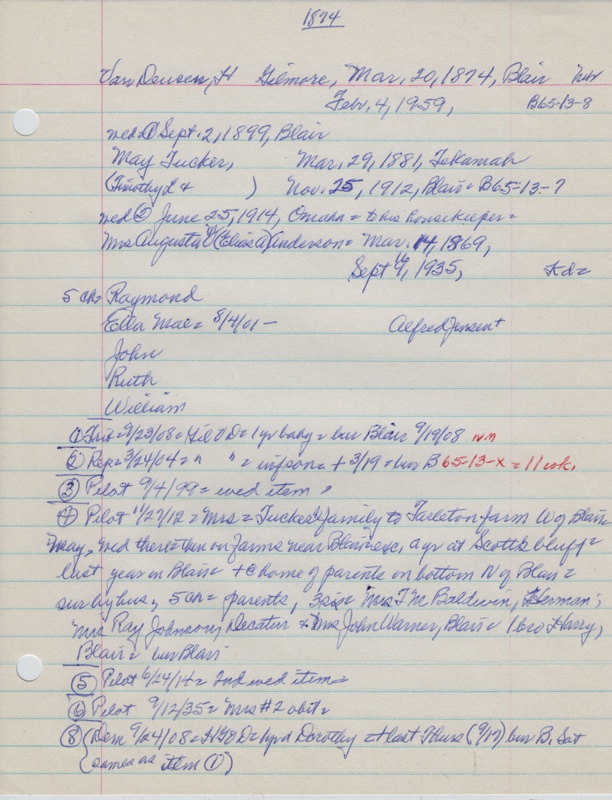 1874
Van Deusen, H Gilmore, Mar. 20, 1874, Blair
Febr. 4, 1959, B65-13-8
wed ① Sept. 2, 1899, Blair
May Tucker, Mar. 29, 1881, Tekamah
(Timothy L & ) Nov. 25, 1912, Blair = B65-13-7
wed ② June 25, 1914, Omaha = to his housekeeper =
Mrs Augusta (Elias A) Anderson = Mar. 14, 1869,
Sept 1935,
5 ch = Raymond
Ella Mae = 8/4/01 - Alfred Jensen +
John
Ruth
William
① Trib = 9/23/08 = Gil V D = 1 yr baby = bur Blair 9/19/08
② Rep = 3/24/04 = " " = inf son = + 3/19 = bur B 65-13-X = 11 wk.
③ Pilot 9/4/99 = wed item
④ Pilot 11/27/12 = Mrs = Tucker family to Tarleton farm W of Blair
May, wed there = then on farms near Blair exc, a yr at Scottsbluff =
last year in Blair = + @ home of parents on bottom N of Blair =
sur by hus, 5 ch = parents, 3 sis = Mrs F M Baldwin, Herman;
Mrs Ray Johnson, Decatur & Mrs John Warner, Blair = 1 bro Harry,
Blair = bur Blair
⑤ Pilot 6/24/14 = 2nd wed item =
⑥ Pilot 9/12/35 = Mrs #2 obit =
⑧ (Dem 9/24/08 = H G V D = 1 yr d Dorothy = + last Thurs (9/17) bur B. Sat
(same as item ①)